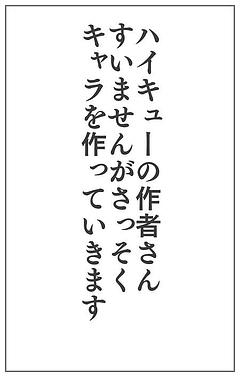 ハイキューの作者さん
すいませんがさっそく
キャラを作っていきます